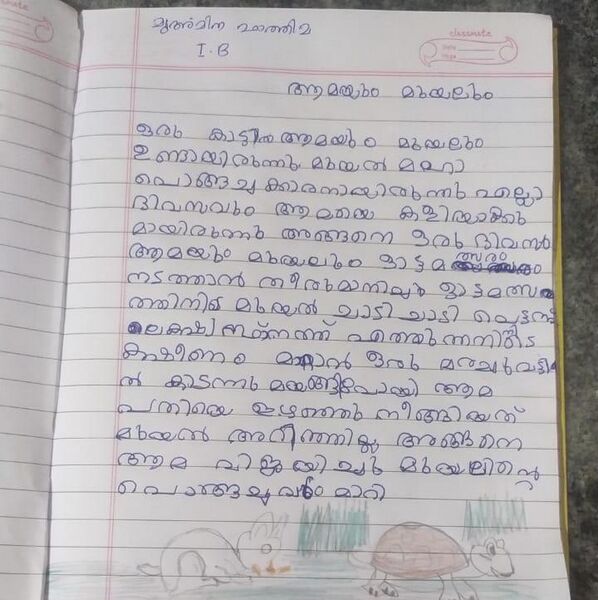 മുഅ്മിന ഫാത്തിമ
I.B
classmate
Date
Page
ആമയും മുയലും
ഒരു കാട്ടിൽ ആമയും മുയലും
ഉണ്ടായിരുന്നു. മുയൽ മഹാ
പൊങ്ങച്ചക്കാരനായിരുന്നു എല്ലാ
ദിവസവും ആമയെ കളിയാക്കു
മായിരുന്നു അങ്ങനെ ഒരു ദിവസം
ആമയും മുയലും ഓട്ടമത്സരം
നടത്താൻ തീരുമാനിച്ചു ഓട്ടമത്സര
ത്തിനിടെ മുയൽ ചാടി ചാടി പെട്ടന്ന്
എത്തുന്നതിനിടെ
ക്ഷീണം മാറാൻ ഒരു മരച്ചുവട്ടി
ൽ കിടന്നു മയങ്ങിപോയി ആമ
പതിയെ ഇഴഞ്ഞു നീങ്ങിയത്
മുയൽ അറിഞ്ഞില്ല അങ്ങനെ
ആമ വിജയിച്ചു മുയലിന്റെ
പൊങ്ങച്ചവും മാറി